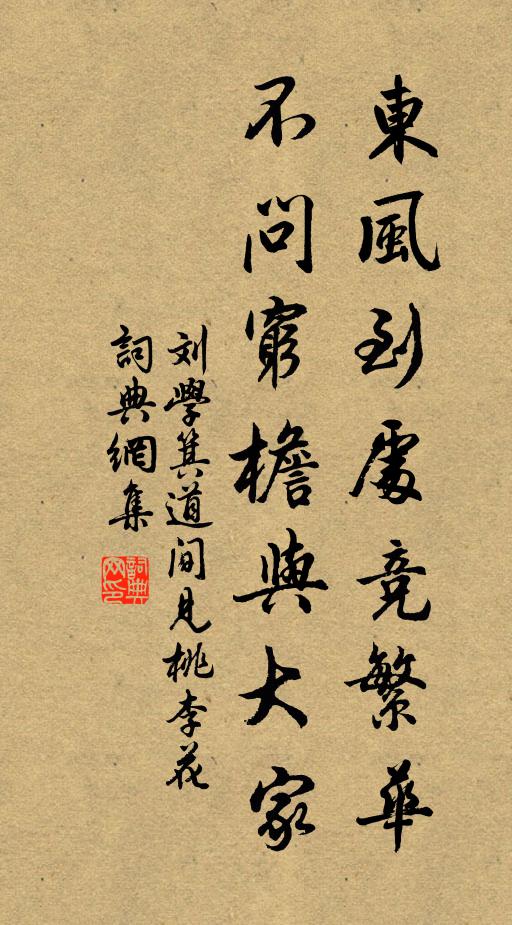 東風到處竞繁華
不問窮檐與大家
刘學箕道间見桃李花
詞典網集
詞典网印